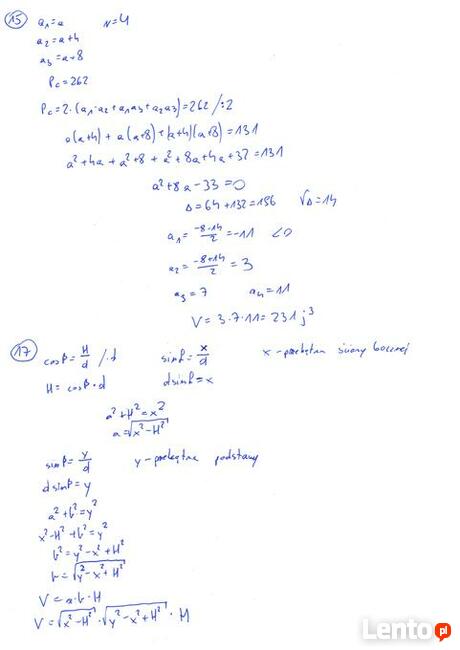 15 a₁=a n=4
a₂=a+4
a₃=a+8
Pc=262
Pc=2·(a₁·a₂+a₁a₃+a₂a₃)=262 /:2
a(a+4)+a(a+8)+(a+4)(a+8)=131
a²+4a+a²+8+a²+8a+4a+32=131
a²+8a-33=0
Δ=64+132=196 √Δ=14
a₁=(-8-14)/2=-11 <0
a₂=(-8+14)/2=3
a₃=7 a₄=11
V=3·7·11=231 j³
17 cosβ=H/d /·d sinα=x/d x-przekątna ściany bocznej
H=cosβ·d dsinα=x
a²+H²=x²
a=√(x²-H²)
sinβ=y/d y-przekątna podstawy
dsinβ=y
a²+b²=y²
x²-H²+b²=y²
b²=y²-x²+H²
b=√(y²-x²+H²)
V=a·b·H
V=√(x²-H²)·√(y²-x²+H²)·H
Lento.pl